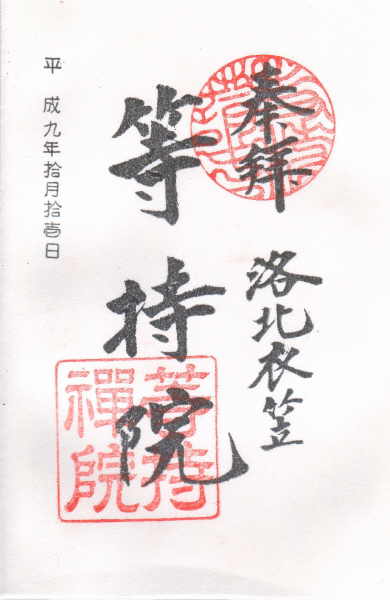 奉拝
洛北衣笠
等持院
等持禅院
平成九年拾月拾壱日